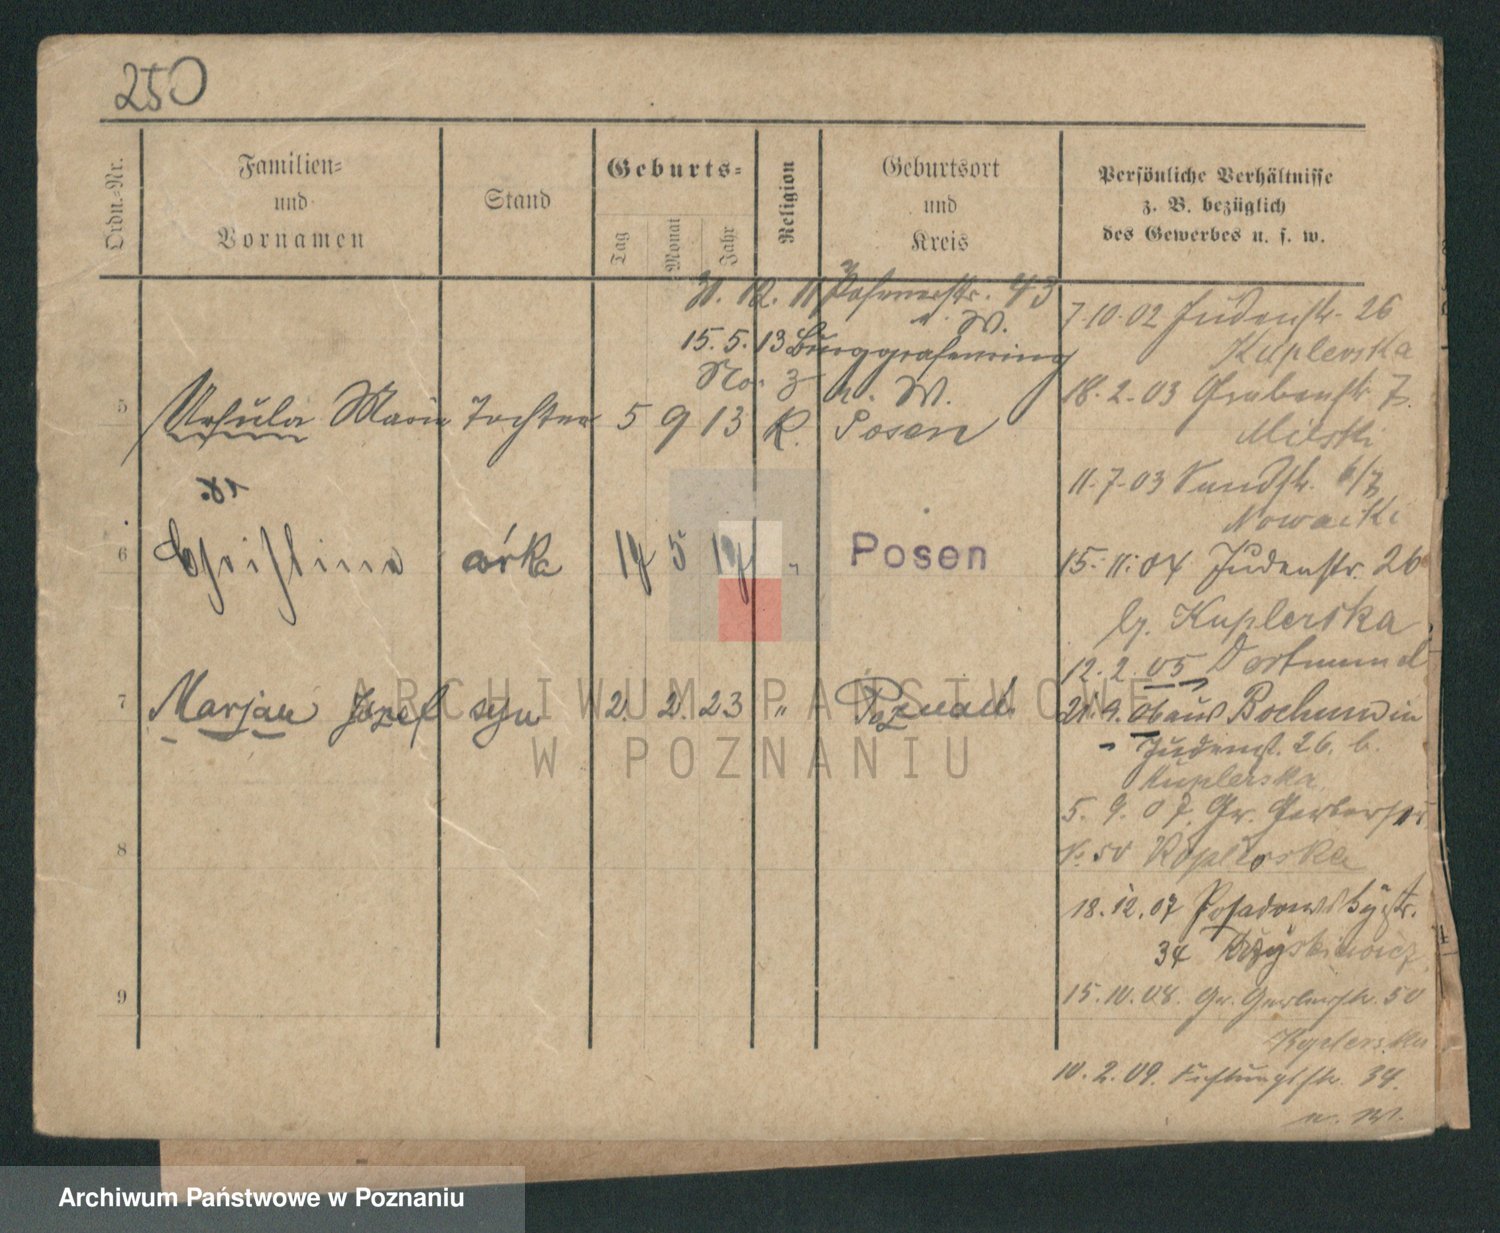 250
Ordn.-Nr.
Familien-
und
Vornamen
Stand
Geburts-
Tag
Monat
Jahr
Religion
Geburtsort
und
Kreis
Persönliche Verhältnisse
z. B. bezüglich
des Gewerbes u. s. w.
31. 12. 11 Posenerstr. 43
u. W.
15. 5. 13 Burggrafenring
No. 3 u. W.
5 Ursula Maria Tochter 5 9 13 K. Posen
6 Christina córka 17 5 17 " Posen
7 Marjan Józef syn 2. 2. 23 " Poznań
8
9
7.10.02 Judenstr. 26
Kuplerska
18.2.03 Grabenstr. 7.
Milski
11.7.03 Sandstr. 6/7
Nowacki
15.11.04 Judenstr. 26
b. Kuplerska
12.2.05 Dortmund
21.9.06 aus Bochum in
Judenst. 26. b.
Kuplerska
5. 9. 07. Gr. Gerberstr
No. 50 Koplerska
18.12.07 Posadowskystr.
34
15.10.08. Gr. Gerberstr. 50
Koplerska
10.2.09. 34.
u. W.
ARCHIWUM PAŃSTWOWE
W POZNANIU
Archiwum Państwowe w Poznaniu